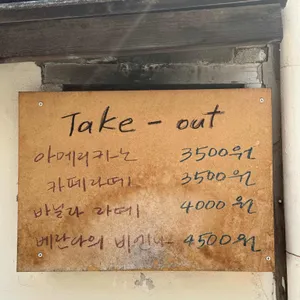 Take - out
아메리카노 3500원
카페라떼 3500원
바닐라 라떼 4000원
베란다의 비밀 4500원